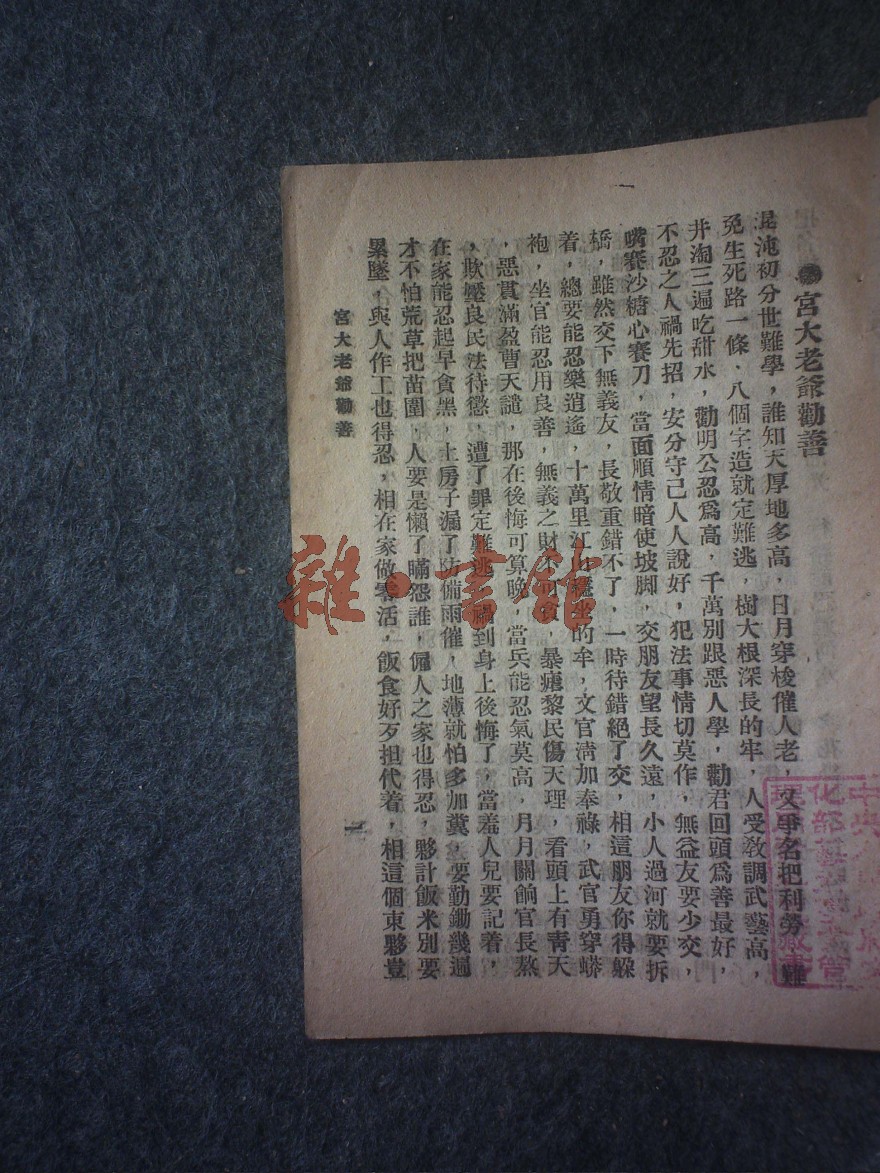 宮大老爺勸善
混沌初分世難學，誰知天厚地多高，日月穿梭催人老，又爭名把利勞，難
免生死路一條，八個字造就定難逃，樹大根深長的牢，人受敎調武藝高，
井淘三遍吃甜水，勸明公忍爲高，千萬別跟惡人學，勸君回頭爲善最好，
不忍之人禍先招，安分守己人人說好，犯法事情切莫作，無益友要少交，
嘴賽沙糖心賽刀，當面順情暗使坡脚，交朋友望長久遠，小人過河就要拆
橋，雖然交下無義友，長敬重錯不了，一時待錯絕了交，相這朋友你得躱
着，總要能忍樂逍遙，十萬里江山穩坐的牢，文官淸加奉祿，武官勇穿蟒
袍，坐官能忍用良善，無義之財不可貪，暴虐黎民傷天理，看頭上有靑天
，惡貫滿盈曹天譴，那在後悔可算晚，當兵能忍氣莫高，月月關餉官長熬
，欺壓良民法待懲，遭了罪定難逃，禍到身上後悔了，當羞人兒要記着，
在家能忍起早貪黑，土房子漏了防備雨催，地薄就怕多加糞，要勤鋤幾遍
才不怕荒草把苗圍，人要是懶了瞞怨誰，僱人之家也得忍，夥計飯米別要
累墜，與人作工也得忍，相在家做零活，飯食好歹担代着，相這個東夥豈
宮大老爺勸善
一
雜·書館